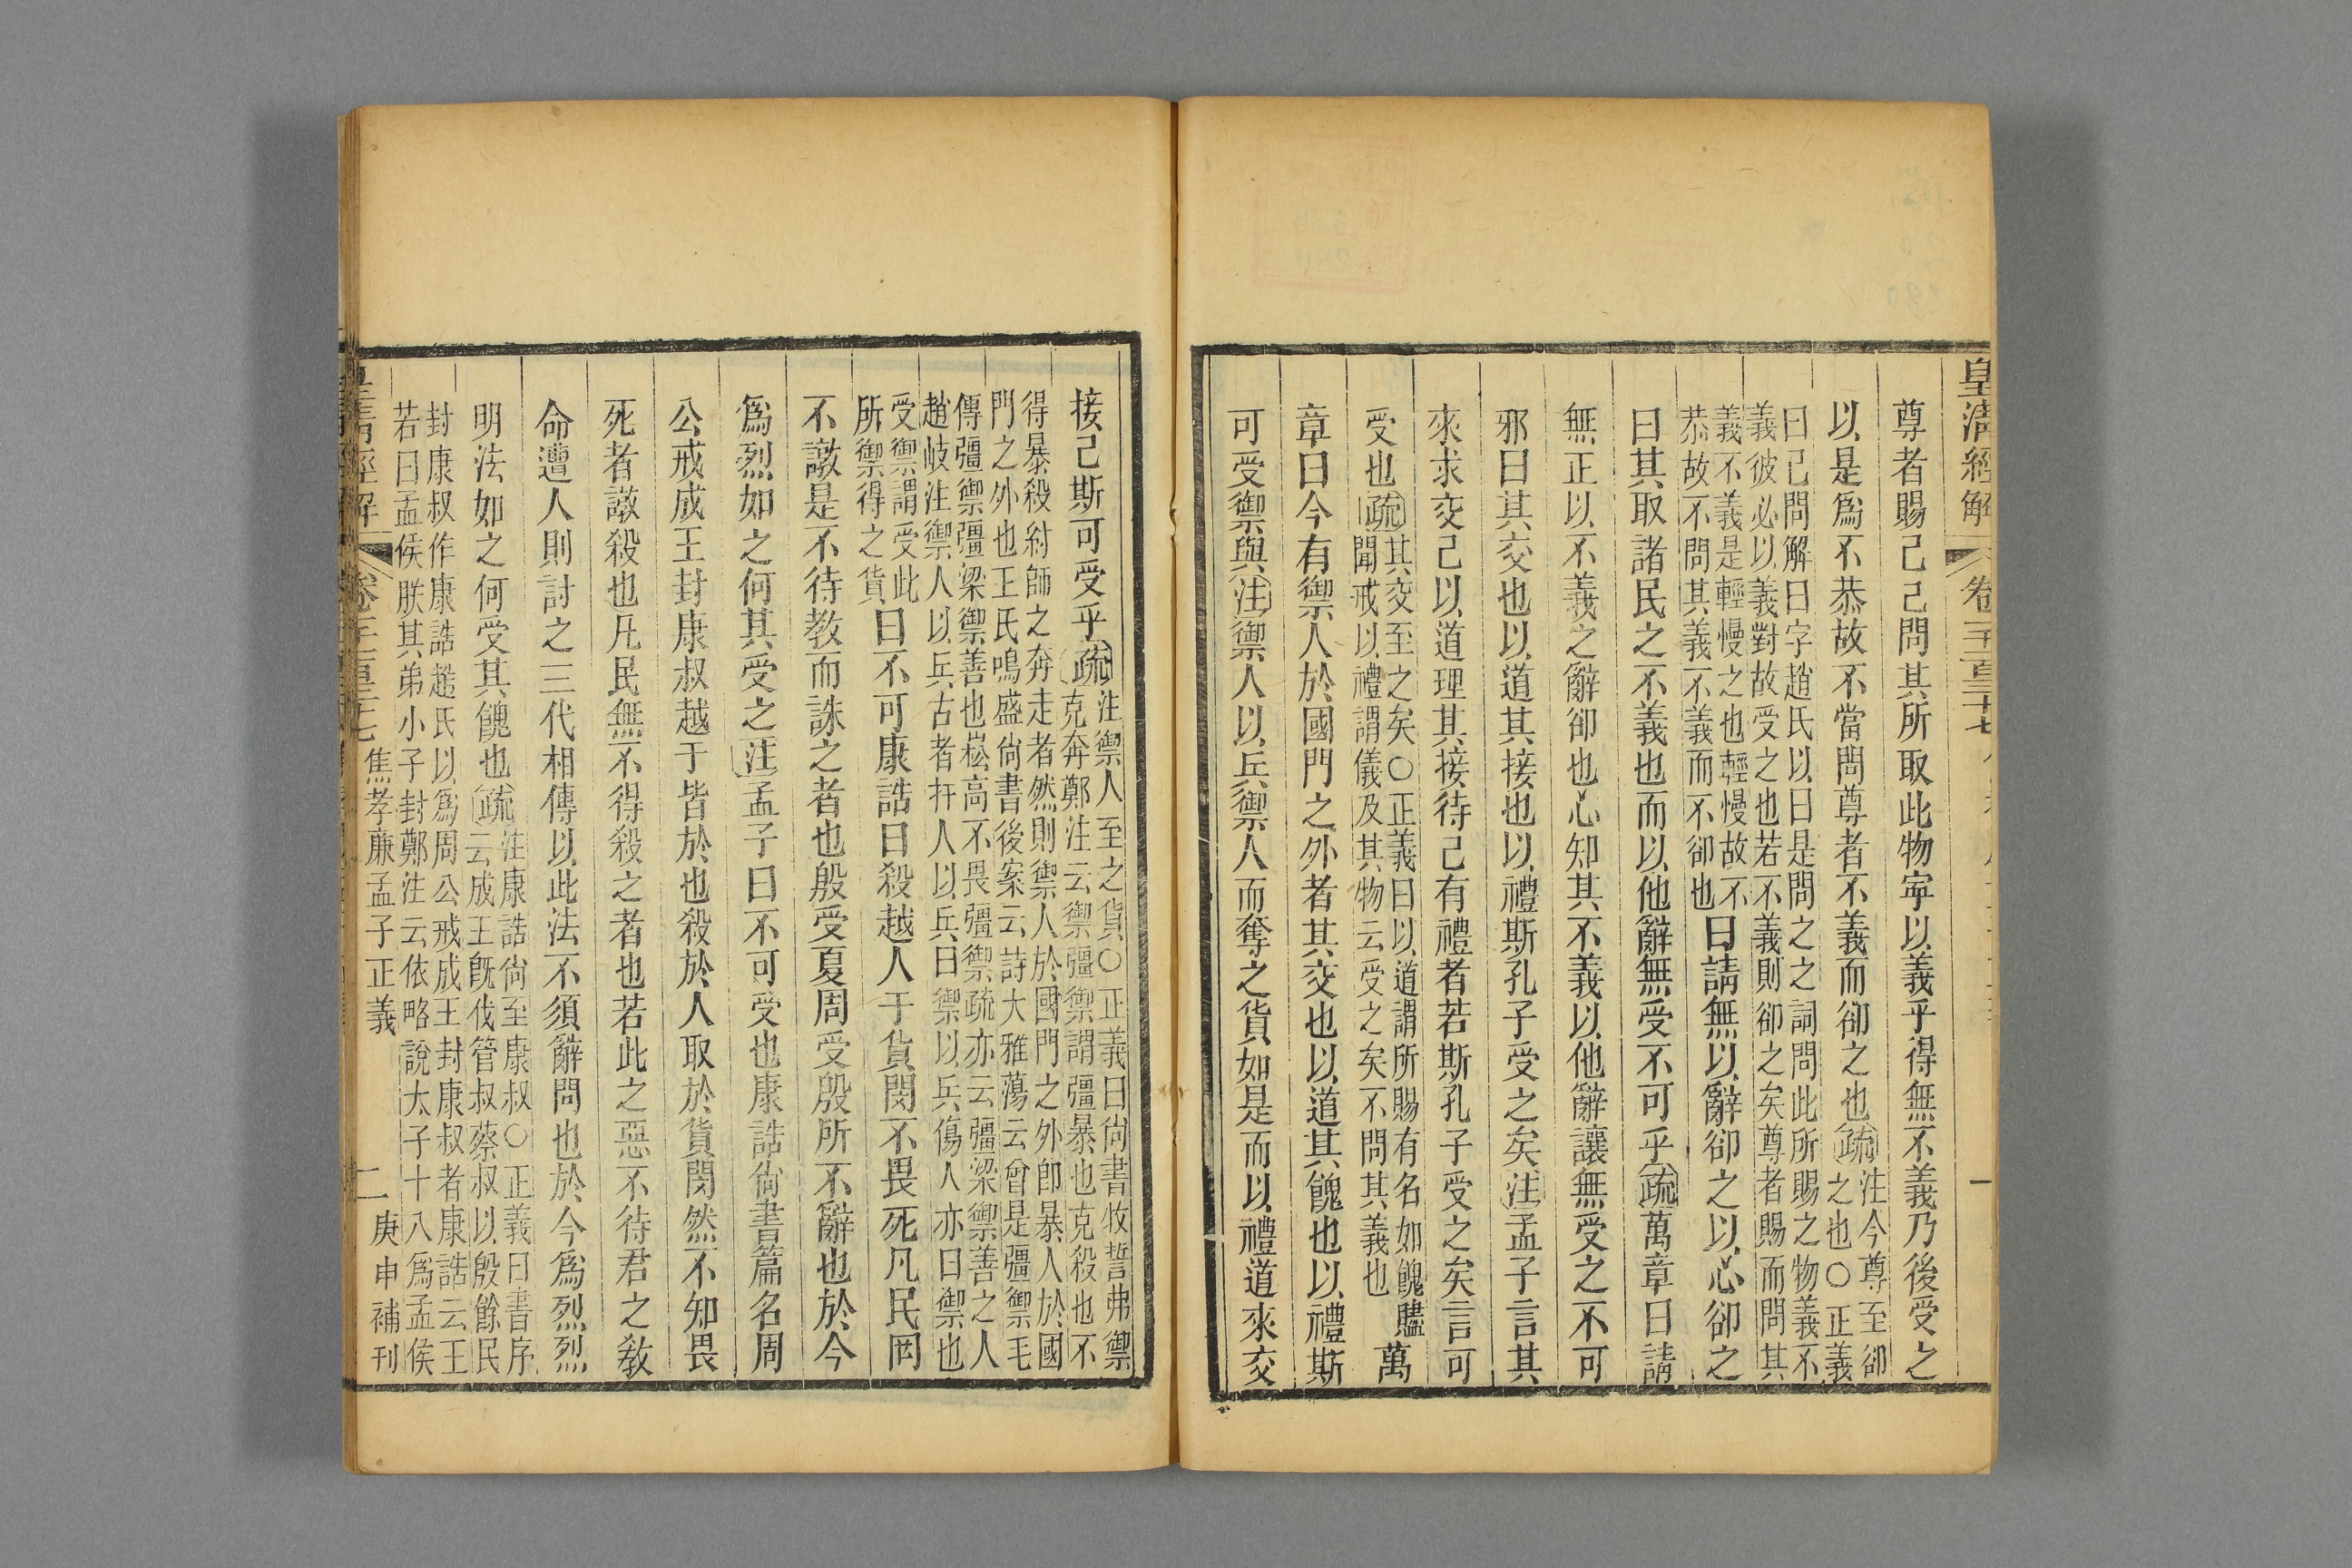 皇清經解 卷一千百三十七 一
尊者賜己己問其所取此物寜以義乎得無不義乃後受之
以是爲不恭故不當問尊者不義而卻之也疏注今尊至卻
之也○正義
曰己問解曰字趙氏以曰是問之之詞問此所賜之物義不
義彼必以義對故受之也若不義則卻之矣尊者賜而問其
義不義是輕慢之也輕慢故不
恭故不問其義不義而不卻也曰請無以辭卻之以心卻之
曰其取諸民之不義也而以他辭無受不可乎疏萬章曰請
無正以不義之辭卻也心知其不義以他辭讓無受之不可
邪曰其交也以道其接也以禮斯孔子受之矣注孟子言其
來求交己以道理其接待己有禮者若斯孔子受之矣言可
受也疏其交至之矣○正義曰以道謂所賜有名如餽贐
聞戒以禮謂儀及其物云受之矣不問其義也萬
章曰今有禦人於國門之外者其交也以道其餽也以禮斯
可受禦與注禦人以兵禦人而奪之貨如是而以禮道來交
接己斯可受乎疏注禦人至之貨○正義曰尙書牧誓弗禦
克奔鄭注云禦彊禦謂彊暴也克殺也不
得暴殺紂師之奔走者然則禦人於國門之外卽暴人於國
門之外也王氏鳴盛尙書後案云詩大雅蕩云曾是彊禦毛
傳彊禦彊梁禦善也崧高不畏彊禦疏亦云彊梁禦善之人
趙岐注禦人以兵古者扞人以兵曰禦以兵傷人亦曰禦也
受禦謂受此
所禦得之貨曰不可康誥曰殺越人于貨閔不畏死凡民罔
不譈是不待教而誅之者也殷受夏周受殷所不辭也於今
爲烈如之何其受之注孟子曰不可受也康誥尙書篇名周
公戒成王封康叔越于皆於也殺於人取於貨閔然不知畏
死者譈殺也凡民無不得殺之者也若此之惡不待君之敎
命遭人則討之三代相傳以此法不須辭問也於今爲烈烈
明法如之何受其餽也疏注康誥尙至康叔○正義曰書序
云成王旣伐管叔蔡叔以殷餘民
封康叔作康誥趙氏以爲周公戒成王封康叔者康誥云王
若曰孟侯朕其弟小子封鄭注云依略說太子十八爲孟侯
皇清經解 卷 焦孝廉孟子正義 二 庚申補刊